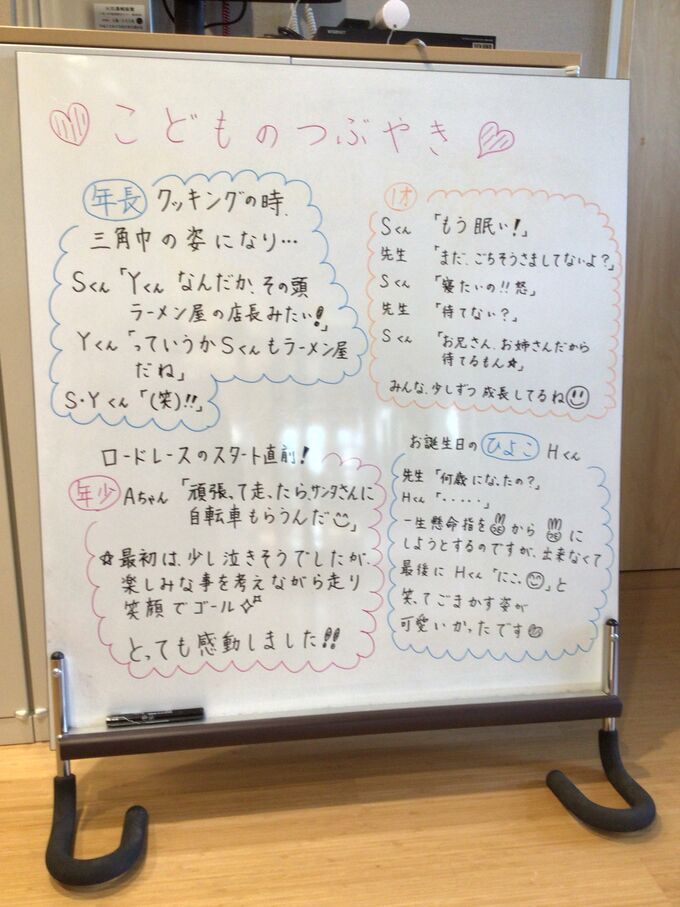 こどものつぶやき
年長 クッキングの時、
三角巾の姿になり…
Sくん「Yくん なんだか、その頭
ラーメン屋の店長みたい!」
Yくん「っていうかSくんもラーメン屋
だね」
S・Yくん「(笑)!!」
1才
Sくん 「もう眠い!」
先生 「まだ、ごちそうさましてないよ?」
Sくん 「寝たいの!!怒」
先生 「待てない?」
Sくん 「お兄さん、お姉さんだから
待てるもん☆」
みんな、少しずつ成長してるね
ロードレースのスタート直前!
年少 Aちゃん「頑張って走ったら、サンタさんに
自転車もらうんだ」
☆最初は、少し泣きそうでしたが、
楽しみな事を考えながら走り
笑顔でゴール
とっても感動しました!!
お誕生日の ひよこ Hくん
先生「何歳になったの?」
Hくん「・・・・・」
一生懸命指を から に
しようとするのですが、出来なくて
最後に Hくん「にこっ」と
笑ってごまかす姿が
可愛いかったです